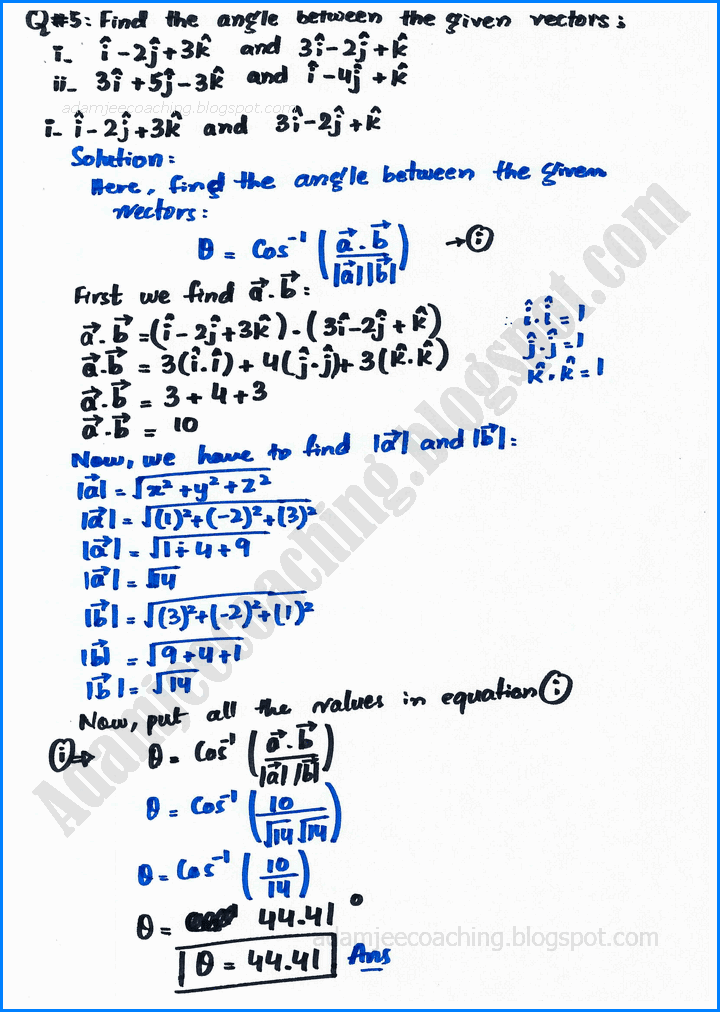 Q#5: Find the angle between the given vectors:
i- î - 2ĵ + 3k̂ and 3î - 2ĵ + k̂
ii- 3î + 5ĵ - 3k̂ and î - 4ĵ + k̂
adamjeecoaching.blogspot.com
i- î - 2ĵ + 3k̂ and 3î - 2ĵ + k̂
Solution:
Here, find the angle between the given
vectors:
θ = Cos⁻¹ (a⃗ . b⃗ / |a⃗||b⃗|) → (i)
First we find a⃗ . b⃗ :
a⃗ . b⃗ = (î - 2ĵ + 3k̂) . (3î - 2ĵ + k̂)
∴ î . î = 1
a⃗ . b⃗ = 3(î . î) + 4(ĵ . ĵ) + 3(k̂ . k̂)
ĵ . ĵ = 1
k̂ . k̂ = 1
a⃗ . b⃗ = 3 + 4 + 3
a⃗ . b⃗ = 10
Now, we have to find |a⃗| and |b⃗| :
|a⃗| = √(x² + y² + z²)
|a⃗| = √((1)² + (-2)² + (3)²)
|a⃗| = √(1 + 4 + 9)
|a⃗| = √14
|b⃗| = √((3)² + (-2)² + (1)²)
|b⃗| = √(9 + 4 + 1)
|b⃗| = √14
Now, put all the values in equation (i)
(i) ⇒ θ = Cos⁻¹ (a⃗ . b⃗ / |a⃗||b⃗|)
θ = Cos⁻¹ (10 / √14 √14)
θ = Cos⁻¹ (10 / 14)
θ = 44.41°
adamjeecoaching.blogspot.com
θ = 44.41 Ans
Adamjeecoaching.blogspot.com